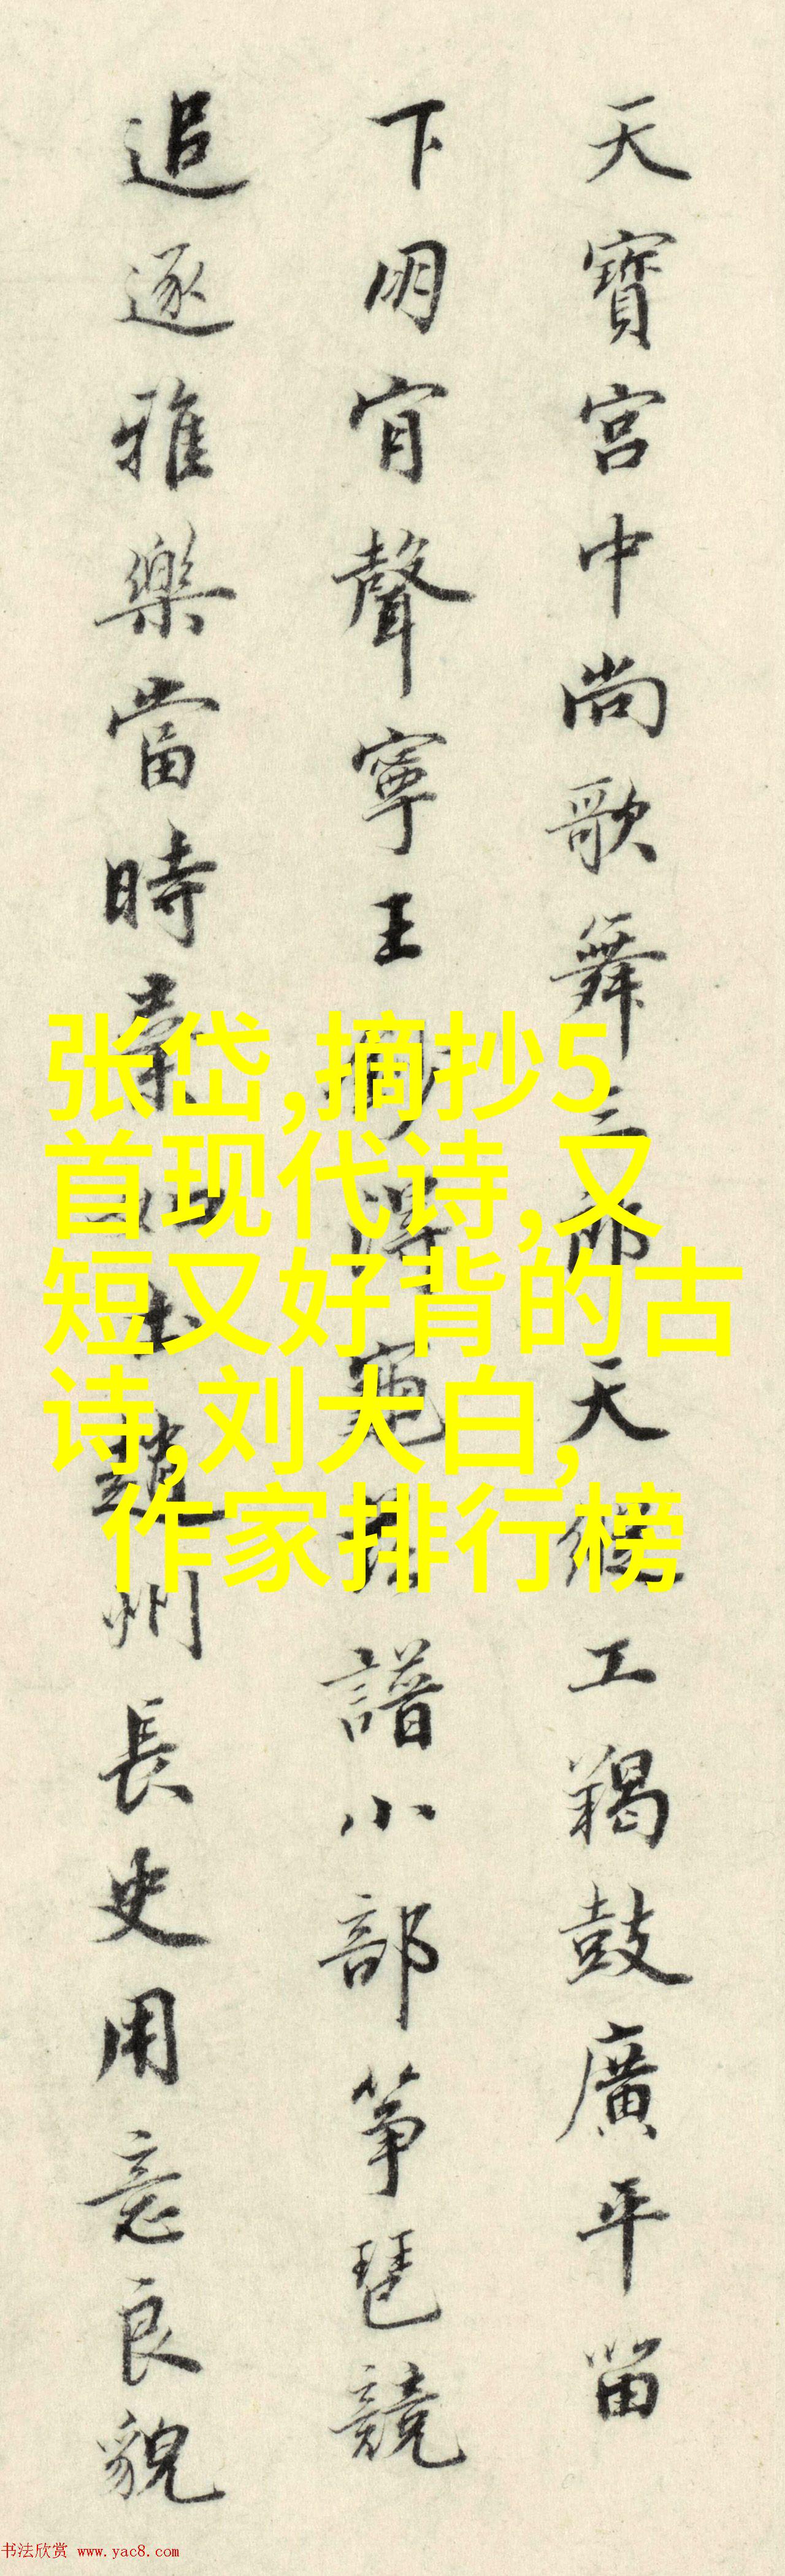 天寶宮中尚歌舞三郎天縱工羯鼓廣平留
下朋肯聲寧王得龜茲譜小部箏琶競
追逐雅樂當時棄如土趙州長史用意良貌
张岱,摘抄5
首现代诗,又
短又好背的古
诗,刘大白,
作家排行榜
书法欣赏 www.yac8.com